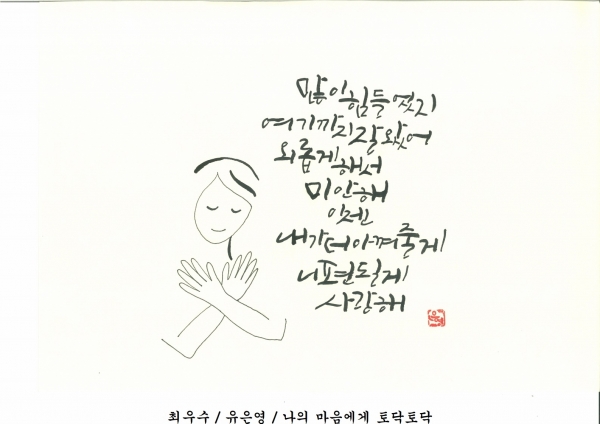 많이 힘들었지
여기까지 잘 왔어
외롭게 해서
미안해
이젠
내가 더 아껴줄게
니 편 될게
사랑해
최우수 / 유은영 / 나의 마음에게 토닥토닥